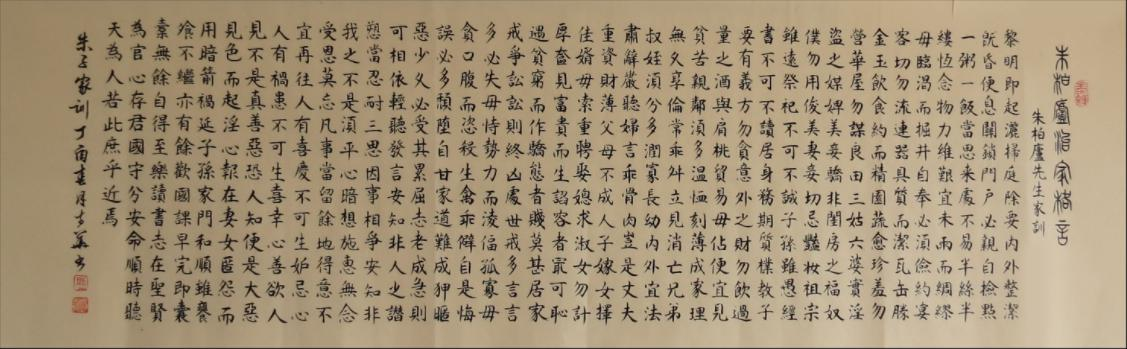 朱柏廬治家格言
朱柏廬先生家訓
黎明即起灑掃庭除要内外整潔
既昏便息關鎖門户必親自檢點
一粥一飯當思来處不易半絲半
縷恆念物力維艱宜未雨而綢繆
毋臨渴而掘井自奉必須儉約宴
客切勿流連器具質而潔瓦缶勝
金玉飲食約而精園蔬愈珍羞勿
營華屋勿謀良田三姑六婆實淫
盜之媒婢美妾嬌非閨房之福奴
僕勿用俊美妻妾切忌豔妝祖宗
雖遠祭祀不可不誠子孫雖愚經
書不可不讀居身務期質樸教子
要有義方勿貪意外之財勿飲過
量之酒與肩挑貿易毋佔便宜見
貧苦親鄰須多温恤刻薄成家理
無久享倫常乖舛立見消亡兄弟
叔姪須分多潤寡長幼内外宜法
肅辭嚴聽婦言乖骨肉豈是丈夫
重資財薄父母不成人子嫁女擇
佳婿毋索重聘娶媳求淑女勿計
厚奩見富貴而生諂容者最可恥
遇貧窮而作驕態者賤莫甚居家
戒爭訟訟則終凶處世戒多言言
多必失毋恃勢力而淩逼孤寡毋
貪口腹而恣殺生禽乖僻自是悔
誤必多頹墮自甘家道難成狎暱
惡少久必受其累屈志老成急則
可相依輕聽發言安知非人之譖
愬當忍耐三思因事相爭安知非
我之不是須平心暗想施惠無念
受恩莫忘凡事當留餘地得意不
宜再往人有喜慶不可生妒忌心
人有禍患不可生喜幸心善欲人
見不是真善惡恐人知便是大惡
見色而起淫心報在妻女匿怨而
用暗箭禍延子孫家門和順雖饔
飧不繼亦有餘歡國課早完即囊
橐無餘自得至樂讀書志在聖賢
為官心存君國守分安命順時聽
天為人若此庶乎近焉
朱子家訓丁酉春月